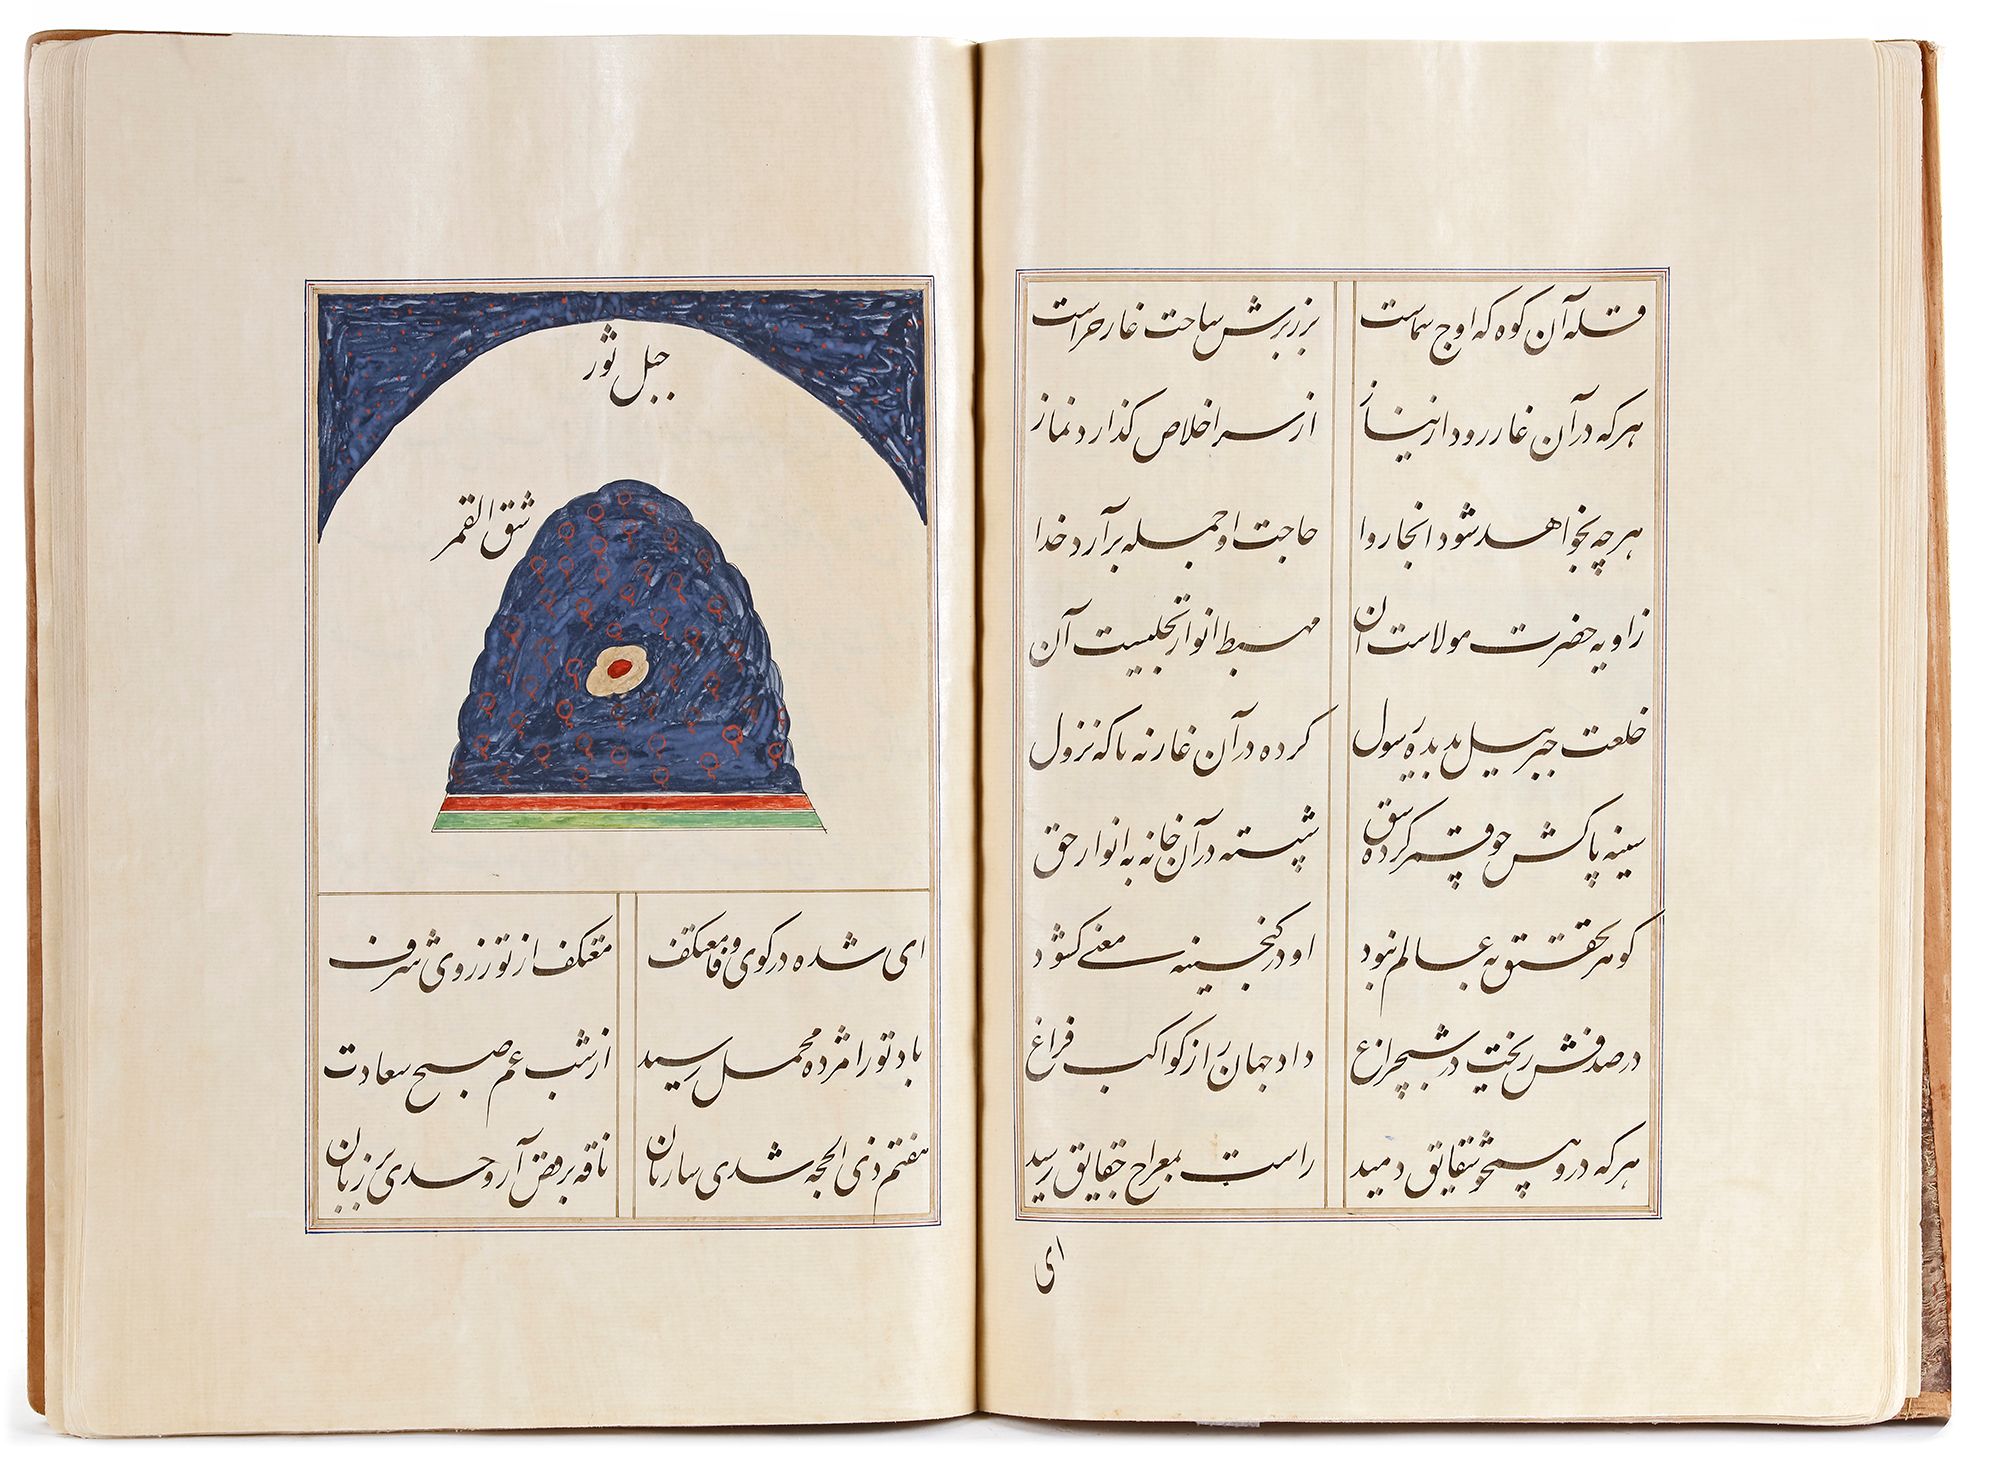 قله آن کوه که اوج سماست بر زبرش ساحت غار حراست
هر که در آن غار رود از نیاز از سر اخلاص گذارد نماز
هر چه بخواهد شود آنجا روا حاجت او جمله برآرد خدا
زاویه حضرت مولاست آن مهبط انوار تجلیست آن
خلعت جبریل بدیده رسول کرده در آن غار نه ما که نزول
سینه پاکش چو قمر کرده شق شسته در آن خانه به انوار حق
گوهر تحقیق به عالم نبود او در گنجینه معنی گشود
در صدفش ریخت در شبچراغ داد جهان را ز کواکب فراغ
هر که درو همچو شقایق دمید راست بمعراج حقایق رسید
ای
جبل ثور
شق القمر
ای شده در کوی وفا معتکف معتکف از تو ز روی شرف
باد تو را مژده محمل رسید از شب غم صبح سعادت
هفتم ذی الحجه شدی ساربان ناقه برقص آر و حدی بر زبان